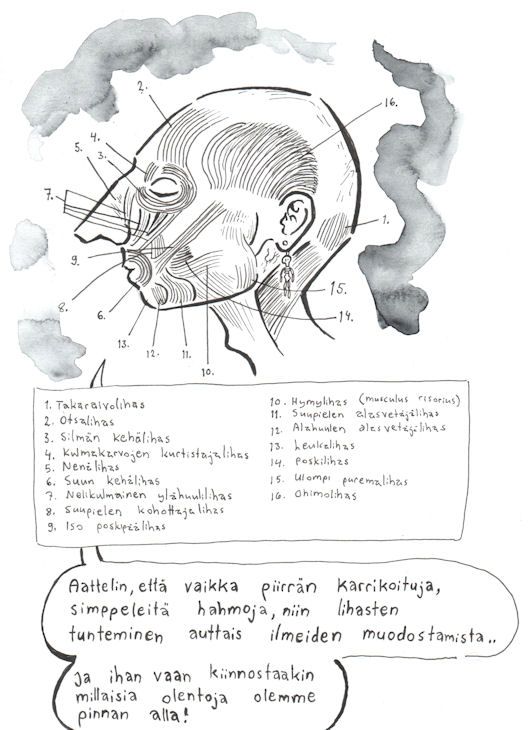 2.
16.
4.
3.
5.
7.
1.
9.
8.
6.
15.
14.
13.
12.
11.
10.
1. Takaraivolihas
2. Otsalihas
3. Silmän kehälihas
4. Kulmakarvojen kurtistajalihas
5. Nenälihas
6. Suun kehälihas
7. Nelikulmainen ylähuulilihas
8. Suupielen kohottajalihas
9. Iso poskipäälihas
10. Hymylihas (musculus risorius)
11. Suupielen alasvetäjälihas
12. Alahuulen alasvetäjälihas
13. Leukalihas
14. Poskilihas
15. Ulompi puremalihas
16. Ohimolihas
Aattelin, että vaikka piirrän karrikoituja,
simppeleitä hahmoja, niin lihasten
tunteminen auttais ilmeiden muodostamista..
Ja ihan vaan kiinnostaakin
millaisia olentoja olemme
pinnan alla!